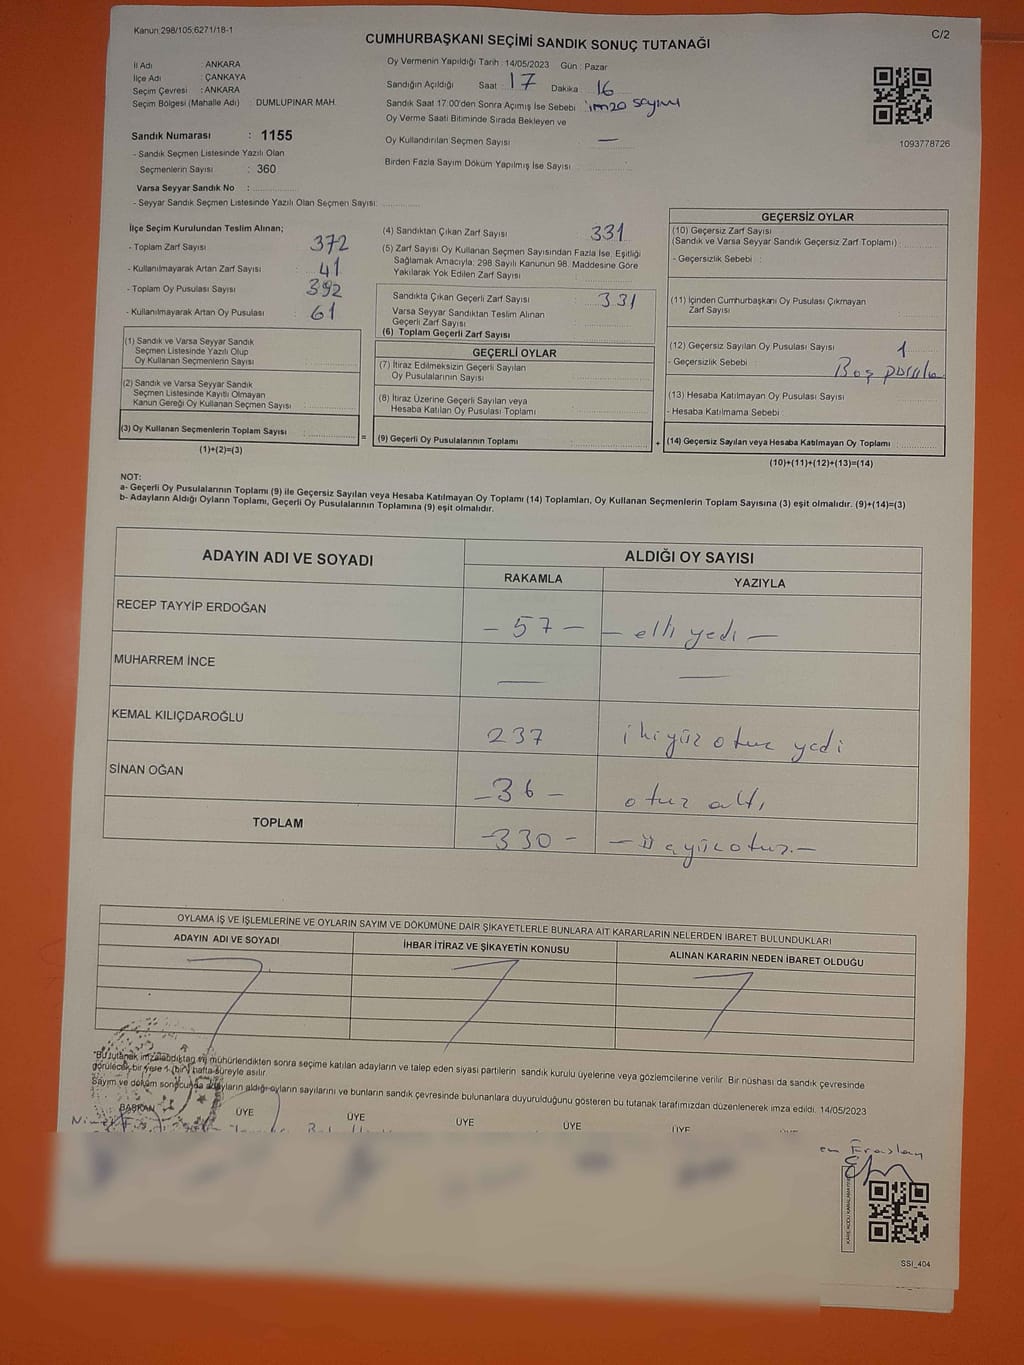 Kanun:298/105;6271/18-1
C/2
CUMHURBAŞKANI SEÇİMİ SANDIK SONUÇ TUTANAĞI
İl Adı : ANKARA
İlçe Adı : ÇANKAYA
Seçim Çevresi : ANKARA
Seçim Bölgesi (Mahalle Adı) : DUMLUPINAR MAH.
Sandık Numarası : 1155
- Sandık Seçmen Listesinde Yazılı Olan
Seçmenlerin Sayısı : 360
Varsa Seyyar Sandık No :
- Seyyar Sandık Seçmen Listesinde Yazılı Olan Seçmen Sayısı:
Oy Vermenin Yapıldığı Tarih : 14/05/2023 Gün : Pazar
Sandığın Açıldığı Saat 17 Dakika 16
Sandık Saat 17:00'den Sonra Açımış İse Sebebi imza sayımı
Oy Verme Saati Bitiminde Sırada Bekleyen ve
Oy Kullandırılan Seçmen Sayısı : —
Birden Fazla Sayım Döküm Yapılmış İse Sayısı :
1093778726
İlçe Seçim Kurulundan Teslim Alınan;
- Toplam Zarf Sayısı 372
- Kullanılmayarak Artan Zarf Sayısı : 41
- Toplam Oy Pusulası Sayısı : 392
- Kullanılmayarak Artan Oy Pusulası : 61
(1) Sandık ve Varsa Seyyar Sandık
Seçmen Listesinde Yazılı Olup
Oy Kullanan Seçmenlerin Sayısı :
(2) Sandık ve Varsa Seyyar Sandık
Seçmen Listesinde Kayıtlı Olmayan
Kanun Gereği Oy Kullanan Seçmen Sayısı :
(3) Oy Kullanan Seçmenlerin Toplam Sayısı :
(1)+(2)=(3)
(4) Sandıktan Çıkan Zarf Sayısı : 331
(5) Zarf Sayısı Oy Kullanan Seçmen Sayısından Fazla İse, Eşitliği
Sağlamak Amacıyla; 298 Sayılı Kanunun 98. Maddesine Göre
Yakılarak Yok Edilen Zarf Sayısı :
Sandıkta Çıkan Geçerli Zarf Sayısı : 331
Varsa Seyyar Sandıktan Teslim Alınan
Geçerli Zarf Sayısı :
(6) Toplam Geçerli Zarf Sayısı :
GEÇERLİ OYLAR
(7) İtiraz Edilmeksizin Geçerli Sayılan
Oy Pusulalarının Sayısı :
(8) İtiraz Üzerine Geçerli Sayılan veya
Hesaba Katılan Oy Pusulası Toplamı :
= (9) Geçerli Oy Pusulalarının Toplamı : +
GEÇERSİZ OYLAR
(10) Geçersiz Zarf Sayısı
(Sandık ve Varsa Seyyar Sandık Geçersiz Zarf Toplamı) :
- Geçersizlik Sebebi :
(11) İçinden Cumhurbaşkanı Oy Pusulası Çıkmayan
Zarf Sayısı :
(12) Geçersiz Sayılan Oy Pusulası Sayısı : 1
- Geçersizlik Sebebi : Boş pusula
(13) Hesaba Katılmayan Oy Pusulası Sayısı :
- Hesaba Katılmama Sebebi :
(14) Geçersiz Sayılan veya Hesaba Katılmayan Oy Toplamı :
(10)+(11)+(12)+(13)=(14)
NOT:
a- Geçerli Oy Pusulalarının Toplamı (9) ile Geçersiz Sayılan veya Hesaba Katılmayan Oy Toplamı (14) Toplamları, Oy Kullanan Seçmenlerin Toplam Sayısına (3) eşit olmalıdır. (9)+(14)=(3)
b- Adayların Aldığı Oyların Toplamı, Geçerli Oy Pusulalarının Toplamına (9) eşit olmalıdır.
ADAYIN ADI VE SOYADI ALDIĞI OY SAYISI
RAKAMLA YAZIYLA
RECEP TAYYİP ERDOĞAN – 57 – – elli yedi –
MUHARREM İNCE — —
KEMAL KILIÇDAROĞLU 237 ikiyüz otuz yedi
SİNAN OĞAN – 36 – otuz altı
TOPLAM – 330 – – üçyüzotuz. –
OYLAMA İŞ VE İŞLEMLERİNE VE OYLARIN SAYIM VE DÖKÜMÜNE DAİR ŞİKAYETLERLE BUNLARA AİT KARARLARIN NELERDEN İBARET BULUNDUKLARI
ADAYIN ADI VE SOYADI İHBAR İTİRAZ VE ŞİKAYETİN KONUSU ALINAN KARARIN NEDEN İBARET OLDUĞU
"Bu tutanak imzalandıktan ve mühürlendikten sonra seçime katılan adayların ve talep eden siyasi partilerin sandık kurulu üyelerine veya gözlemcilerine verilir. Bir nüshası da sandık çevresinde
görülecek bir yere 1 (bir) hafta süreyle asılır.
Sayım ve döküm sonucunda adayların aldığı oyların sayılarını ve bunların sandık çevresinde bulunanlara duyurulduğunu gösteren bu tutanak tarafımızdan düzenlenerek imza edildi. 14/05/2023
BAŞKAN ÜYE ÜYE ÜYE ÜYE ÜYE
Eraslan
SSİ_404